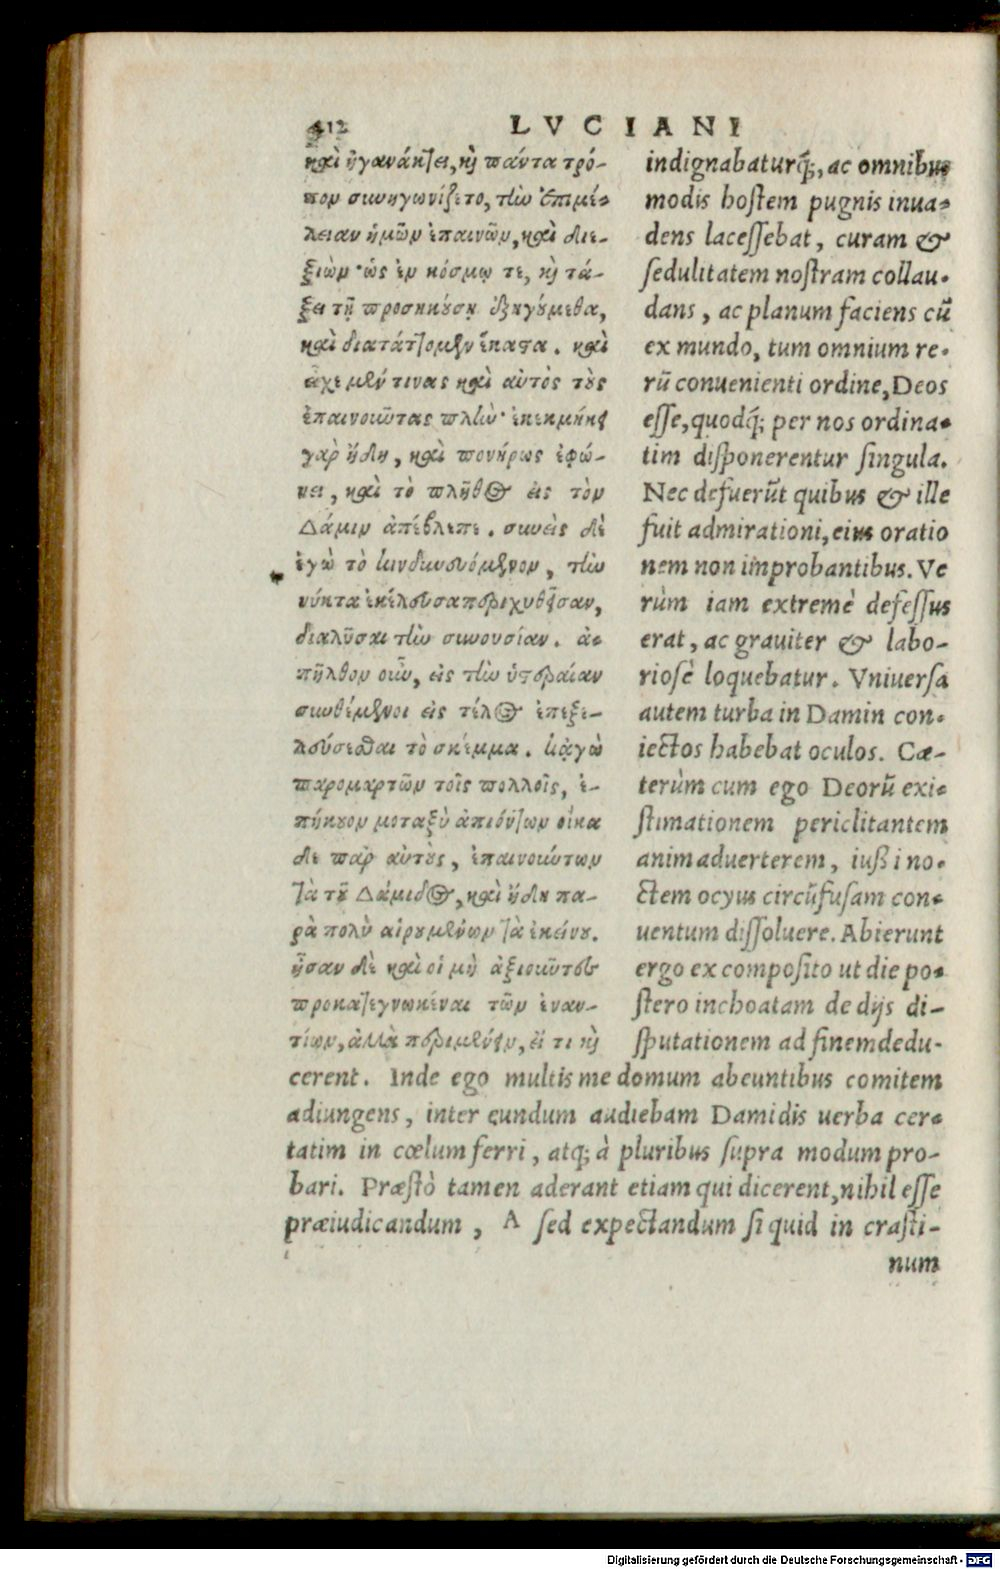 412
LVCIANI
καὶ ἠγανάκτει, καὶ πάντα τρό-
πον συνηγωνίζετο, τὴν ἐπιμέ-
λειαν ἡμῶν ἐπαινῶν, καὶ διε-
ξιὼν· ὡς ἐν κόσμῳ τε, καὶ τά-
ξει τῇ προσηκούσῃ ἐξηγούμεθα,
καὶ διατάττομεν ἕκαστα. καὶ
εἶχε μέν τινας καὶ αὐτὸς τοὺς
ἐπαινοῦντας πλὴν· ἐκεκμήκει
γὰρ ἤδη, καὶ πονήρως ἐφώ-
νει, καὶ τὸ πλῆθος εἰς τὸν
Δάμιν ἀπέβλεπε. συνεὶς δὲ
ἐγὼ τὸ κινδυνευόμενον, τὴν
νύκτα ἐκέλευσα περιχυθεῖσαν,
διαλῦσαι τὴν συνουσίαν. ἀ-
πῆλθον οὖν, εἰς τὴν ὑστεραίαν
συνθέμενοι εἰς τέλος ἐπεξε-
λεύσεσθαι τὸ σκέμμα. κἀγὼ
παρομαρτῶν τοῖς πολλοῖς, ἐ-
πήκουον μεταξὺ ἀπιόντων οἴκα
δε παρ αὐτοὺς, ἐπαινούντων
τὰ τοῦ Δάμιδος, καὶ ἤδη πα-
ρὰ πολὺ αἱρουμένων τὰ ἐκείνου.
ἦσαν δὲ καὶ οἱ μὴ ἀξιοῦντες
προκατεγνωκέναι τῶν ἐναν-
τίων, ἀλλὰ περιμένειν, εἴ τι καὶ
indignabaturq́;, ac omnibus
modis hostem pugnis inua-
dens lacessebat, curam &
sedulitatem nostram collau-
dans, ac planum faciens cũ
ex mundo, tum omnium re-
rũ conuenienti ordine, Deos
esse, quodq́; per nos ordina-
tim disponerentur singula.
Nec defuerũt quibus & ille
fuit admirationi, eius oratio
nem non improbantibus. Ve
rùm iam extremè defessus
erat, ac grauiter & labo-
riosè loquebatur. Vniuersa
autem turba in Damin con-
iectos habebat oculos. Cæ-
terùm cum ego Deorũ exi-
stimationem periclitantem
animaduerterem, iußi no-
ctem ocyus circũfusam con-
uentum dissoluere. Abierunt
ergo ex composito ut die po-
stero inchoatam de dijs di-
sputationem ad finem dedu-
cerent. Inde ego multis me domum abeuntibus comitem
adiungens, inter eundum audiebam Damidis uerba cer-
tatim in cœlum ferri, atq; à pluribus supra modum pro-
bari. Præstò tamen aderant etiam qui dicerent, nihil esse
præiudicandum, A sed expectandum si quid in crasti-
num
Digitalisierung gefördert durch die Deutsche Forschungsgemeinschaft - DFG